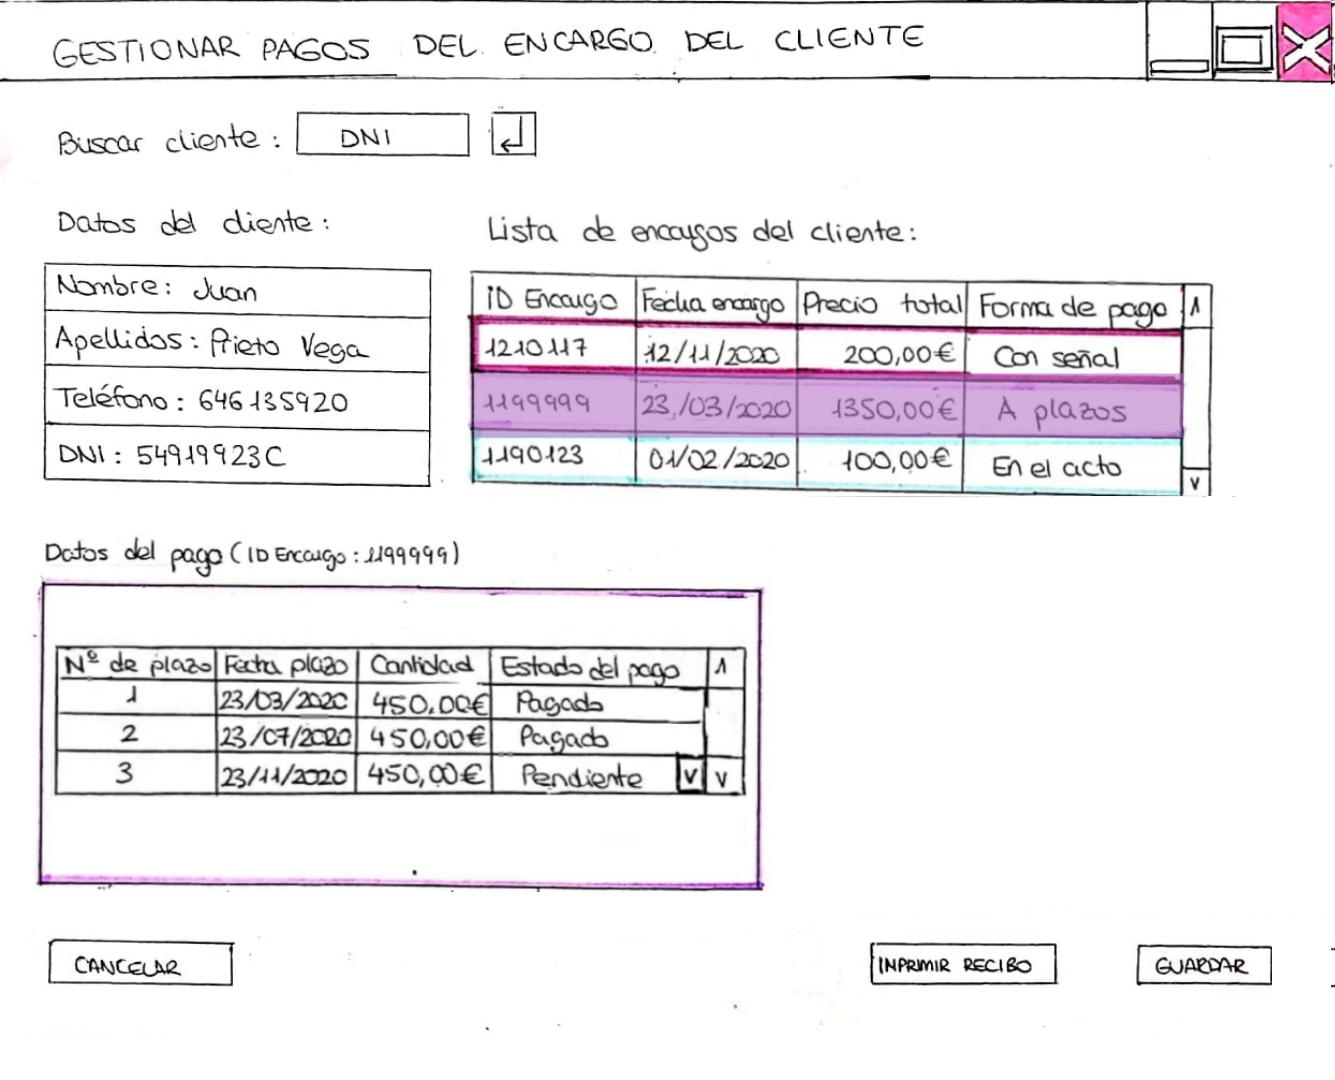 GESTIONAR PAGOS DEL ENCARGO DEL CLIENTE
Buscar cliente: DNI
Datos del cliente:
Nombre: Juan
Apellidos: Prieto Vega
Teléfono: 646135920
DNI: 54919923C
Lista de encargos del cliente:
ID Encargo Fecha encargo Precio total Forma de pago
1210117 12/11/2020 200,00€ Con señal
1199999 23/03/2020 1350,00€ A plazos
1190123 01/02/2020 100,00€ En el acto
Datos del pago (ID Encargo: 1199999)
Nº de plazo Fecha plazo Cantidad Estado del pago
1 23/03/2020 450,00€ Pagado
2 23/07/2020 450,00€ Pagado
3 23/11/2020 450,00€ Pendiente
CANCELAR INPRIMIR RECIBO GUARDAR